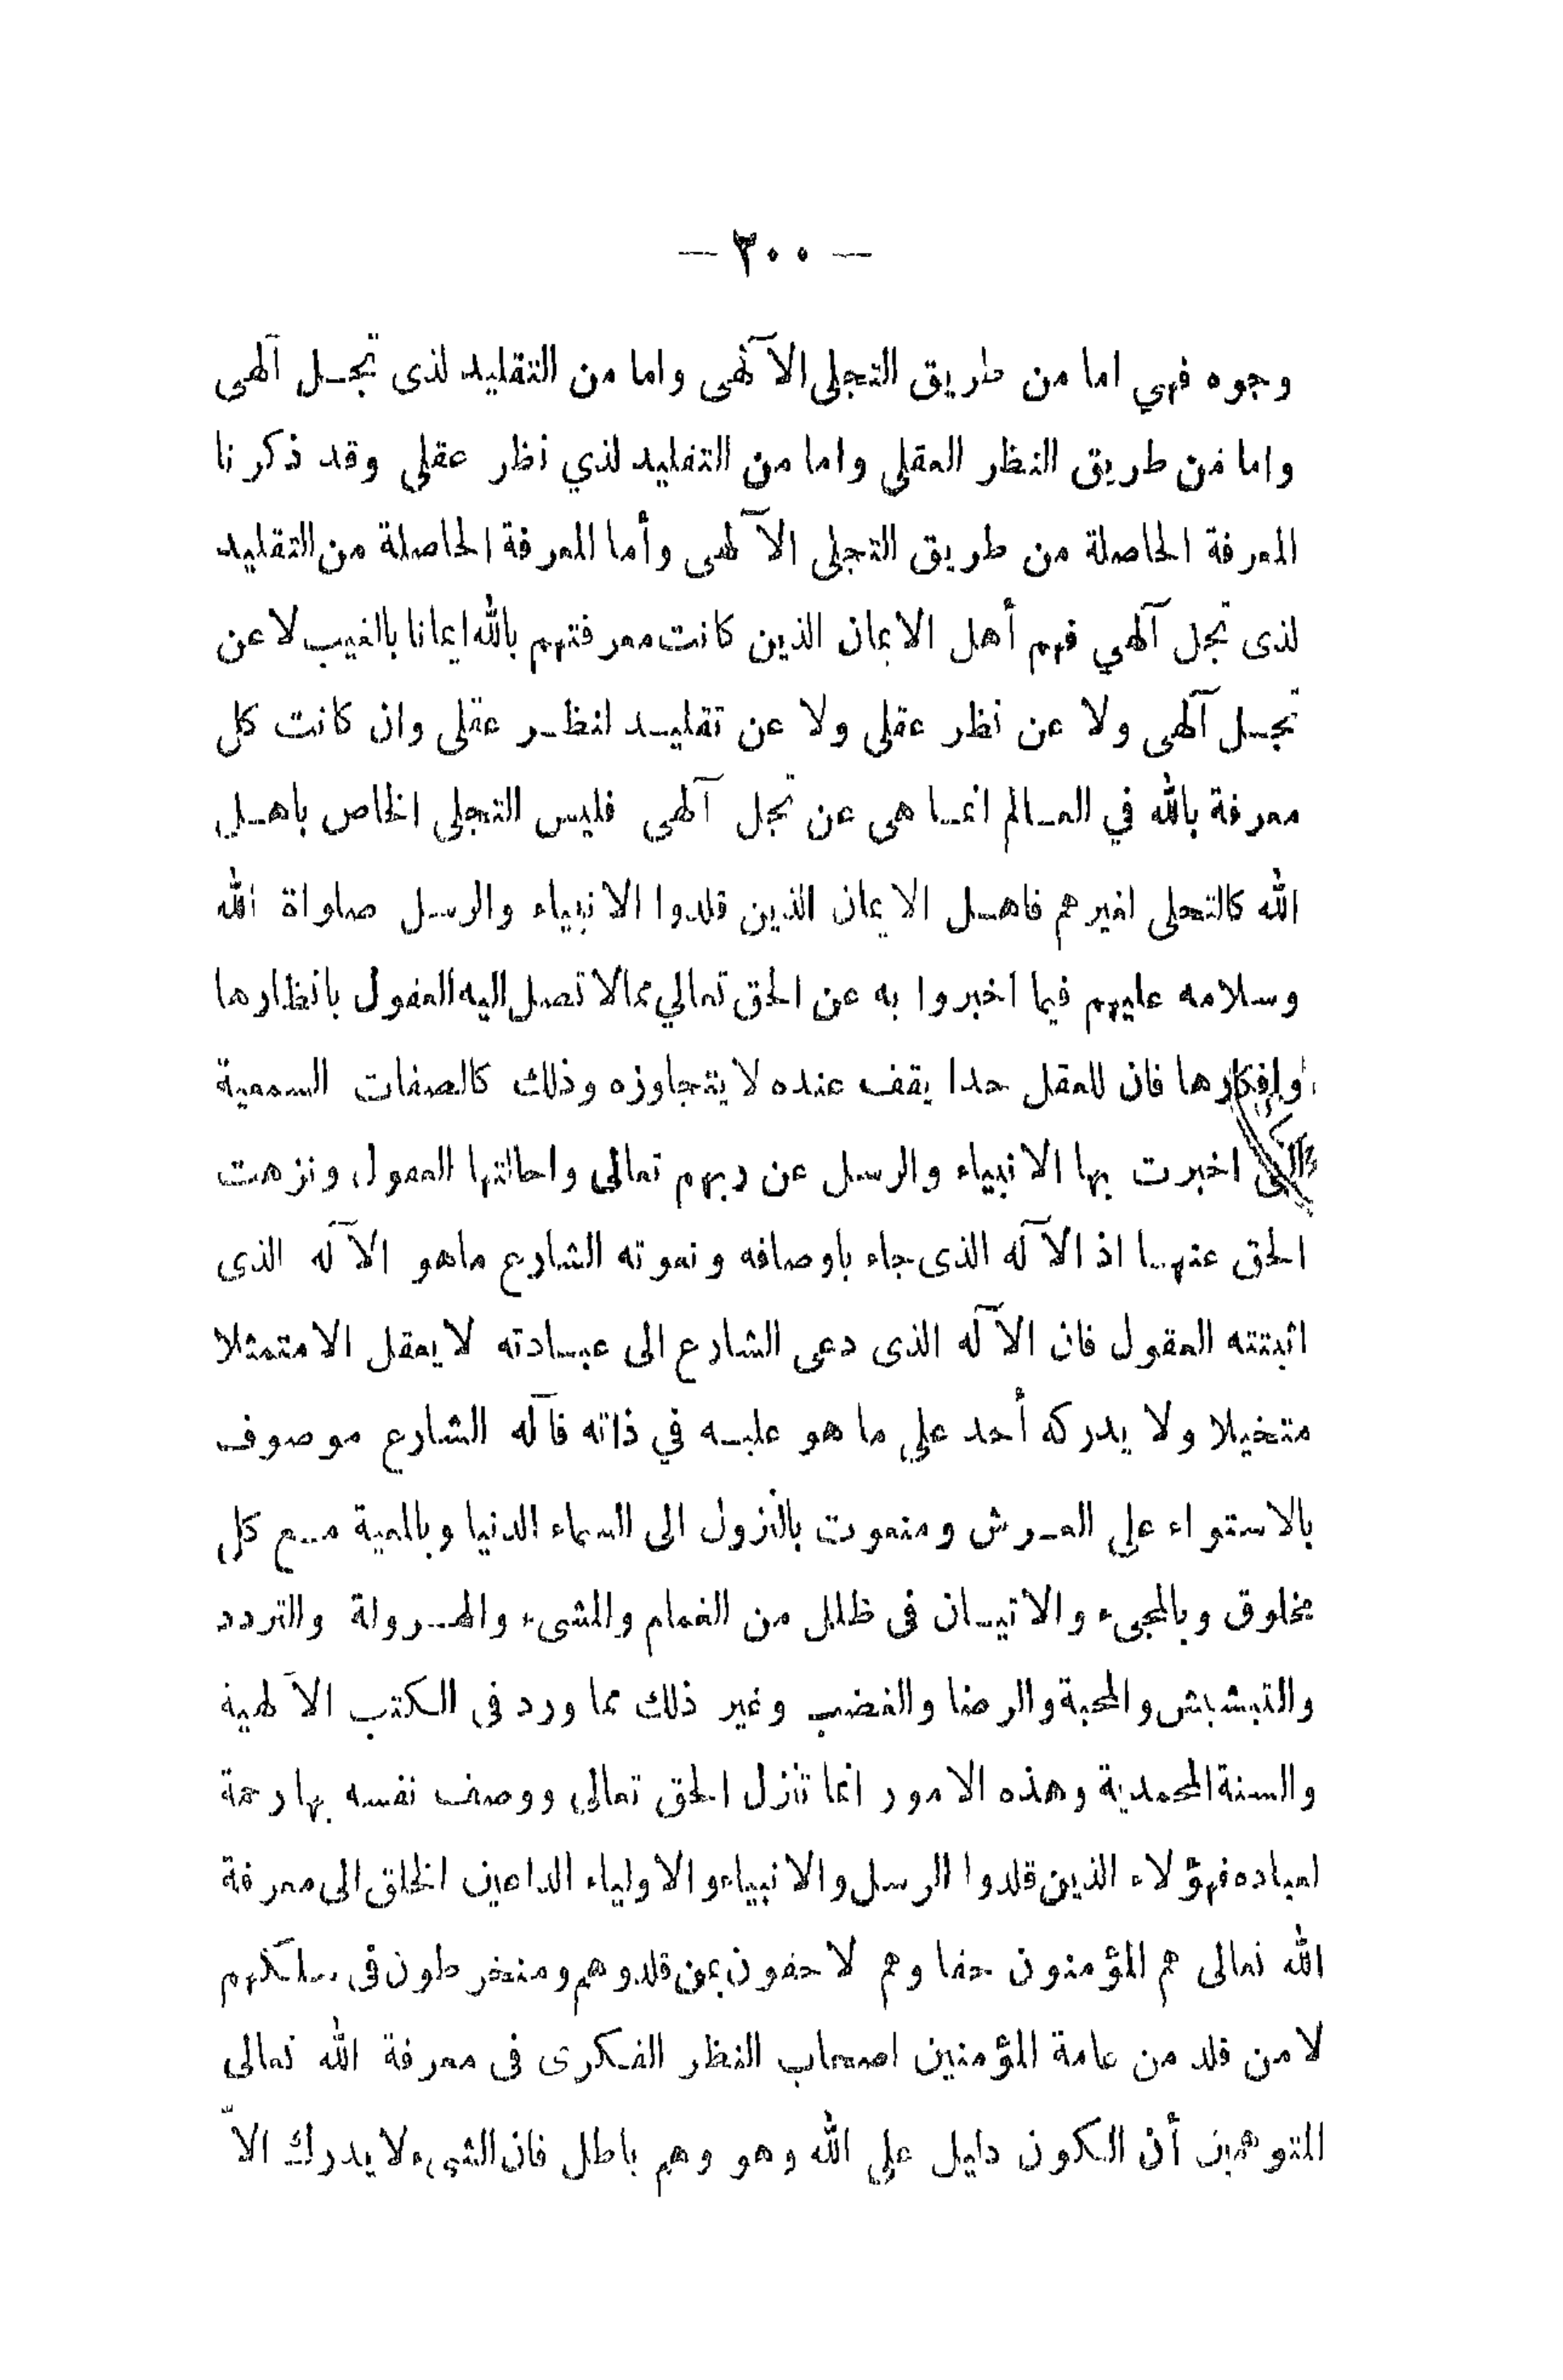 — ٢٠٠ —
وجوه فهي اما من طريق التجلى الآلهى واما من التقليد لذى تجـل آلهى
واما من طريق النظر العقلى واما من التقليد لذي نظر عقلى وقد ذكرنا
المعرفة الحاصلة من طريق التجلى الآلهى وأما المعرفة الحاصلة من التقليد
لذى تجل آلهي فهم أهل الايمان الذين كانت معرفتهم بالله ايمانا بالغيب لا عن
تجـل آلهى ولا عن نظر عقلى ولا عن تقليـد لنظـر عقلى وان كانت كل
معرفة بالله في العـالم انمـا هى عن تجل آلهى فليس التجلى الخاص باهـل
الله كالتجلى لغيرهم فاهـل الايمان الذين قلدوا الانبياء والرسل صلواة الله
وسلامه عليهم فيما اخبروا به عن الحق تعالي مما لا تصل اليه العقول بانظارها
وافكارها فان للعقل حدا يقف عنده لا يتجاوزه وذلك كالصفات السمعية
التى اخبرت بها الانبياء والرسل عن ربهم تعالى واحالتها العقول ونزهت
الحق عنهـا اذ الآله الذى جاء باوصافه ونعوته الشارع ماهو الآله الذى
اثبتته العقول فان الآله الذى دعى الشارع الى عبـادته لا يعقل الا متمثلا
متخيلا ولا يدركه أحد على ما هو عليـه في ذاته فآله الشارع موصوف
بالاستواء على العـرش ومنعوت بالنزول الى السماء الدنيا وبالمعية مـع كل
مخلوق وبالمجىء والاتيـان فى ظلل من الغمام والمشىء والهـرولة والتردد
والتبشبش والمحبة والرضا والغضب وغير ذلك مما ورد فى الكتب الآلهية
والسنة المحمدية وهذه الامور انما تنزل الحق تعالى ووصف نفسه بها رحمة
لعباده فهؤلاء الذين قلدوا الرسل والانبياء والاولياء الداعين الخلق الى معرفة
الله تعالى هم المؤمنون حقا وهم لاحقون بمن قلدوهم ومنخرطون فى سلكهم
لا من قلد من عامة المؤمنين اصحاب النظر الفكرى فى معرفة الله تعالى
المتوهمين أن الكون دليل على الله وهو وهم باطل فان الشىء لا يدرك الاّ